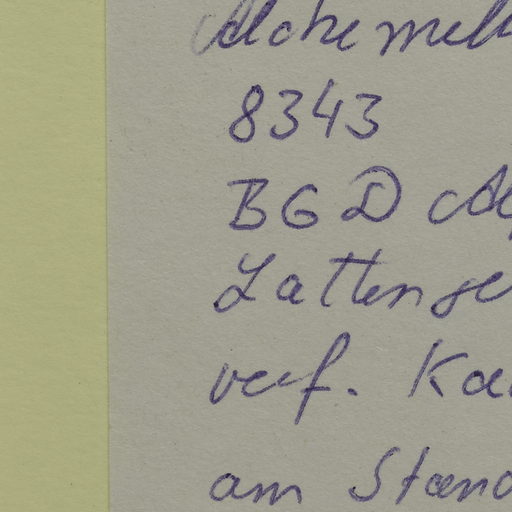 Alchemill
8343
BGD Al
Lattenge
verf. Ka
am Stand